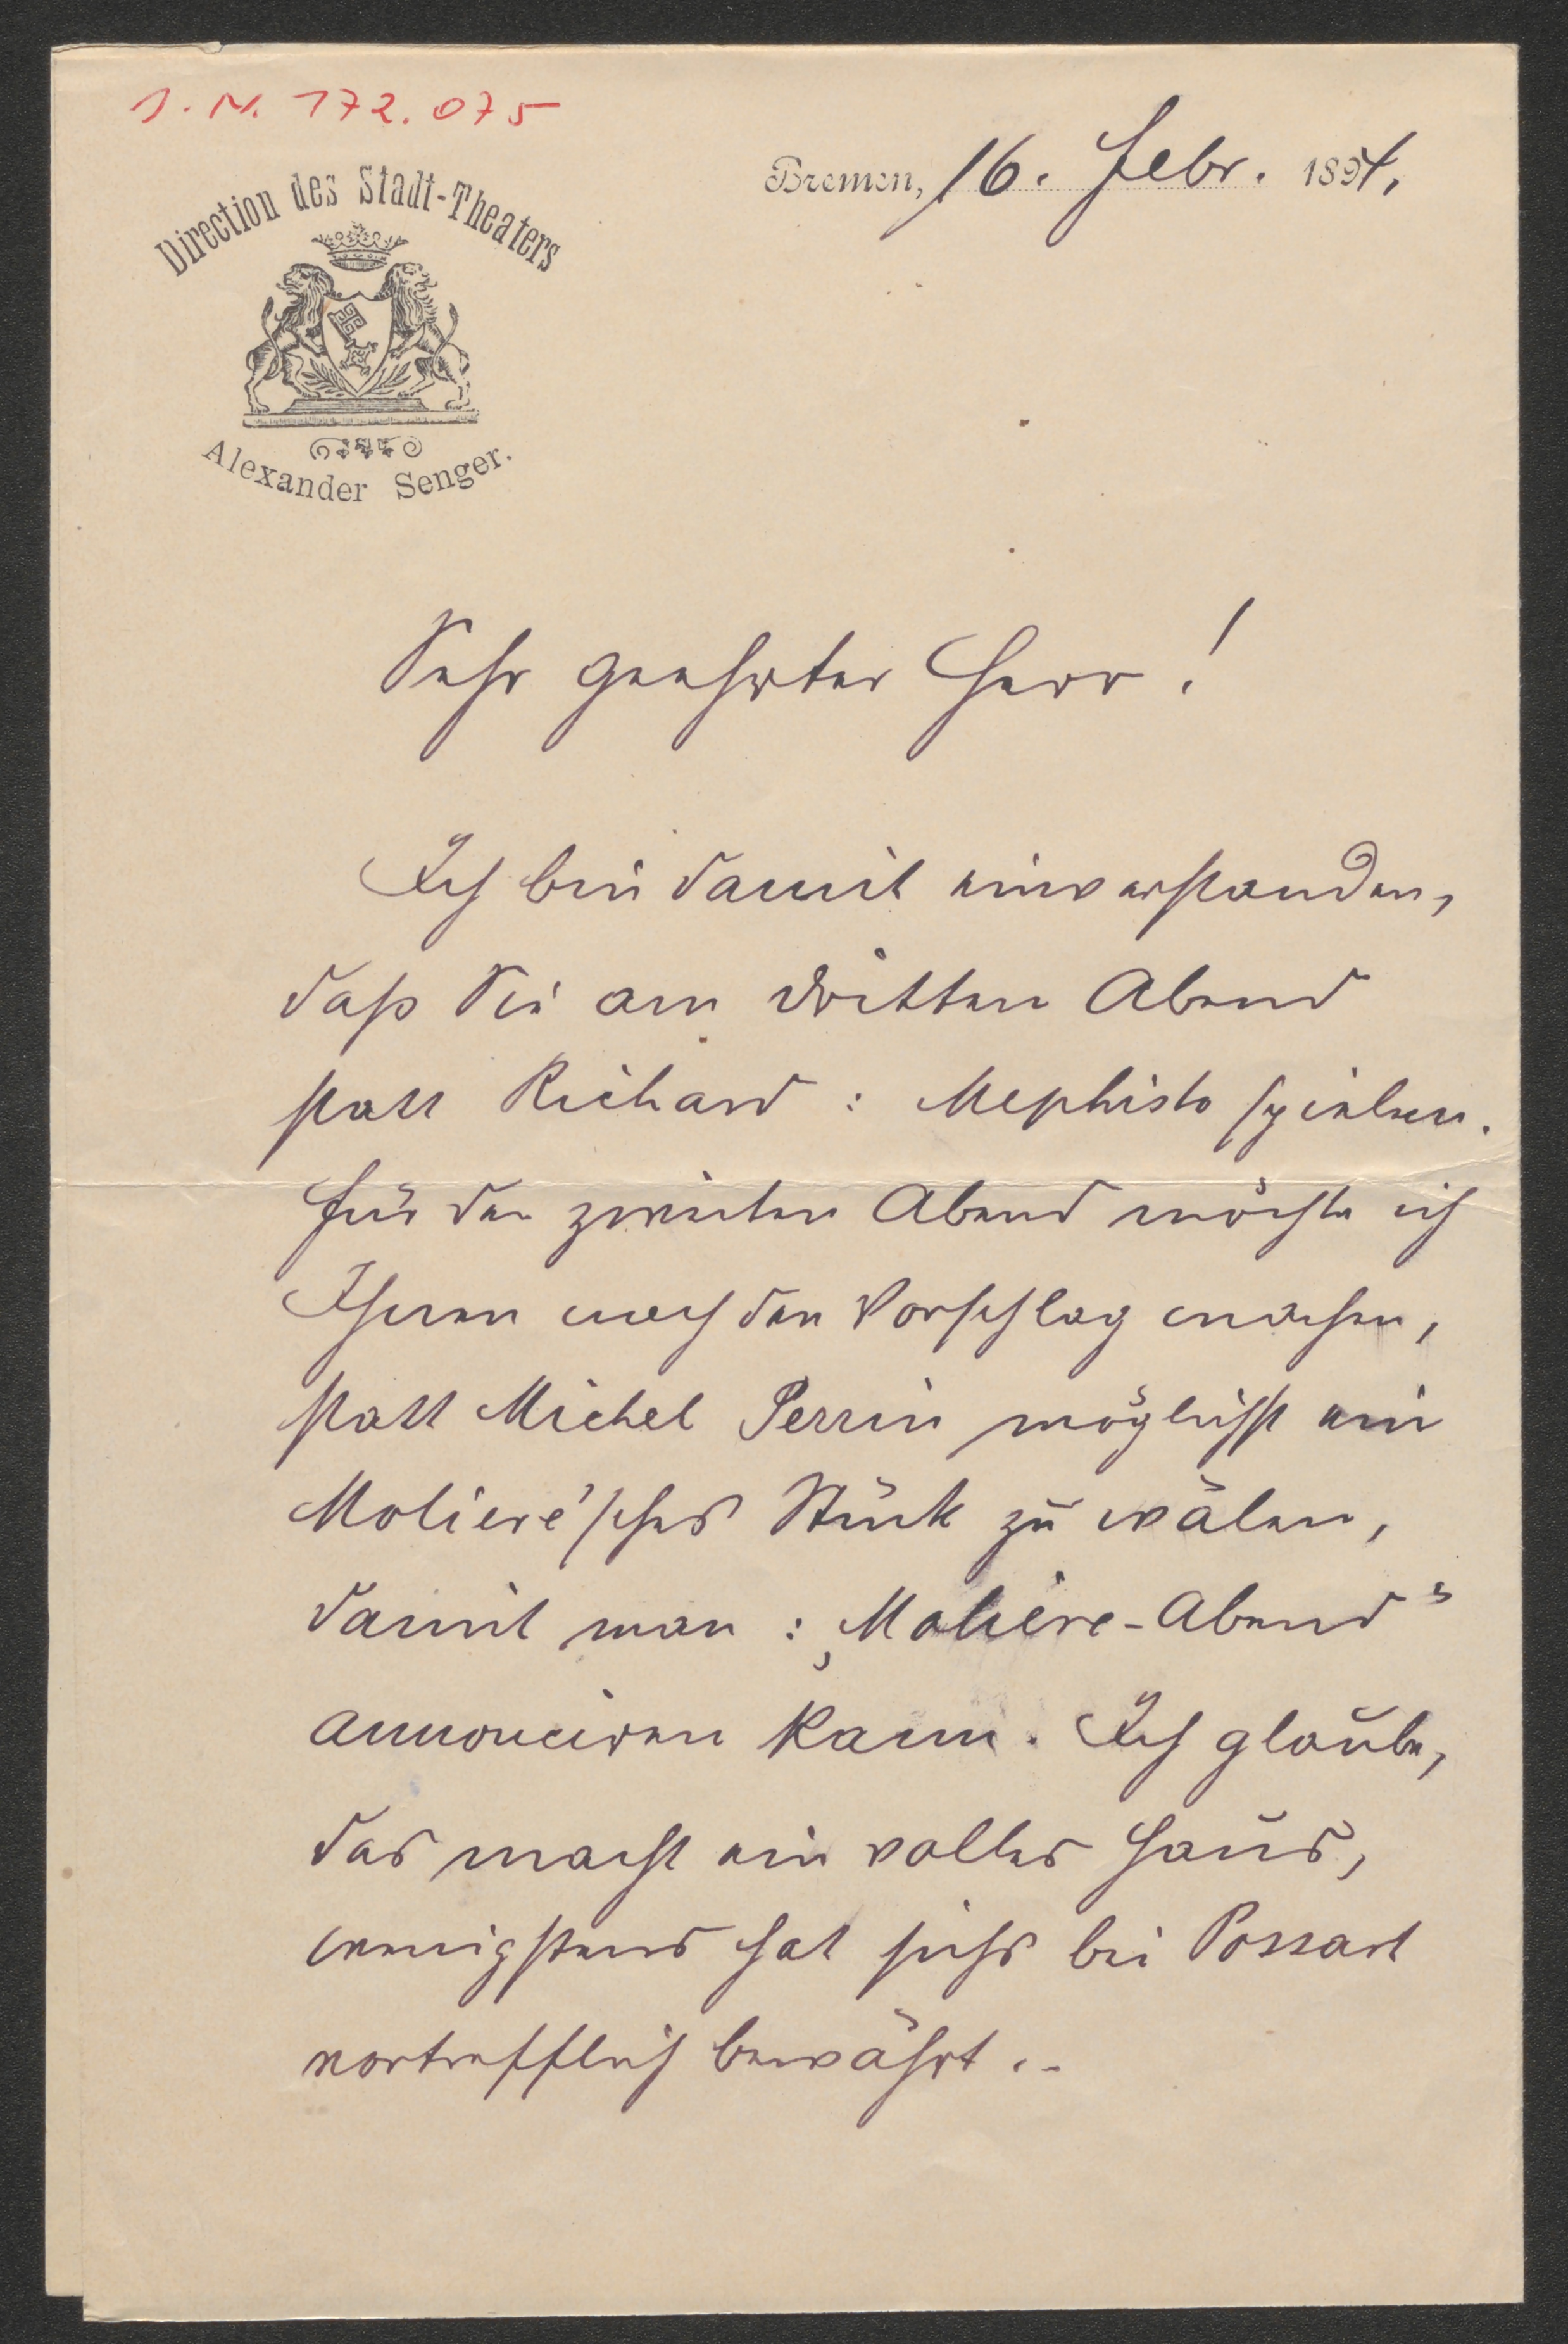 J. N. 172.075
Direction des Stadt-Theaters
Alexander Senger.
Bremen, 16. Febr. 1894.
Sehr geehrter Herr!
Ich bin damit einverstanden,
daß Sie am dritten Abend
statt Richard: Mephisto spielen.
Für den zweiten Abend möchte ich
Ihnen noch den Vorschlag machen,
statt Michel Perrin möglichst ein
Moliere'sches Stück zu wälen,
damit man: „Molière-Abend“
annonciren kann. Ich glaube,
das macht ein volles Haus,
wenigstens hat sich's bei Possart
vortrefflich bewährt.-